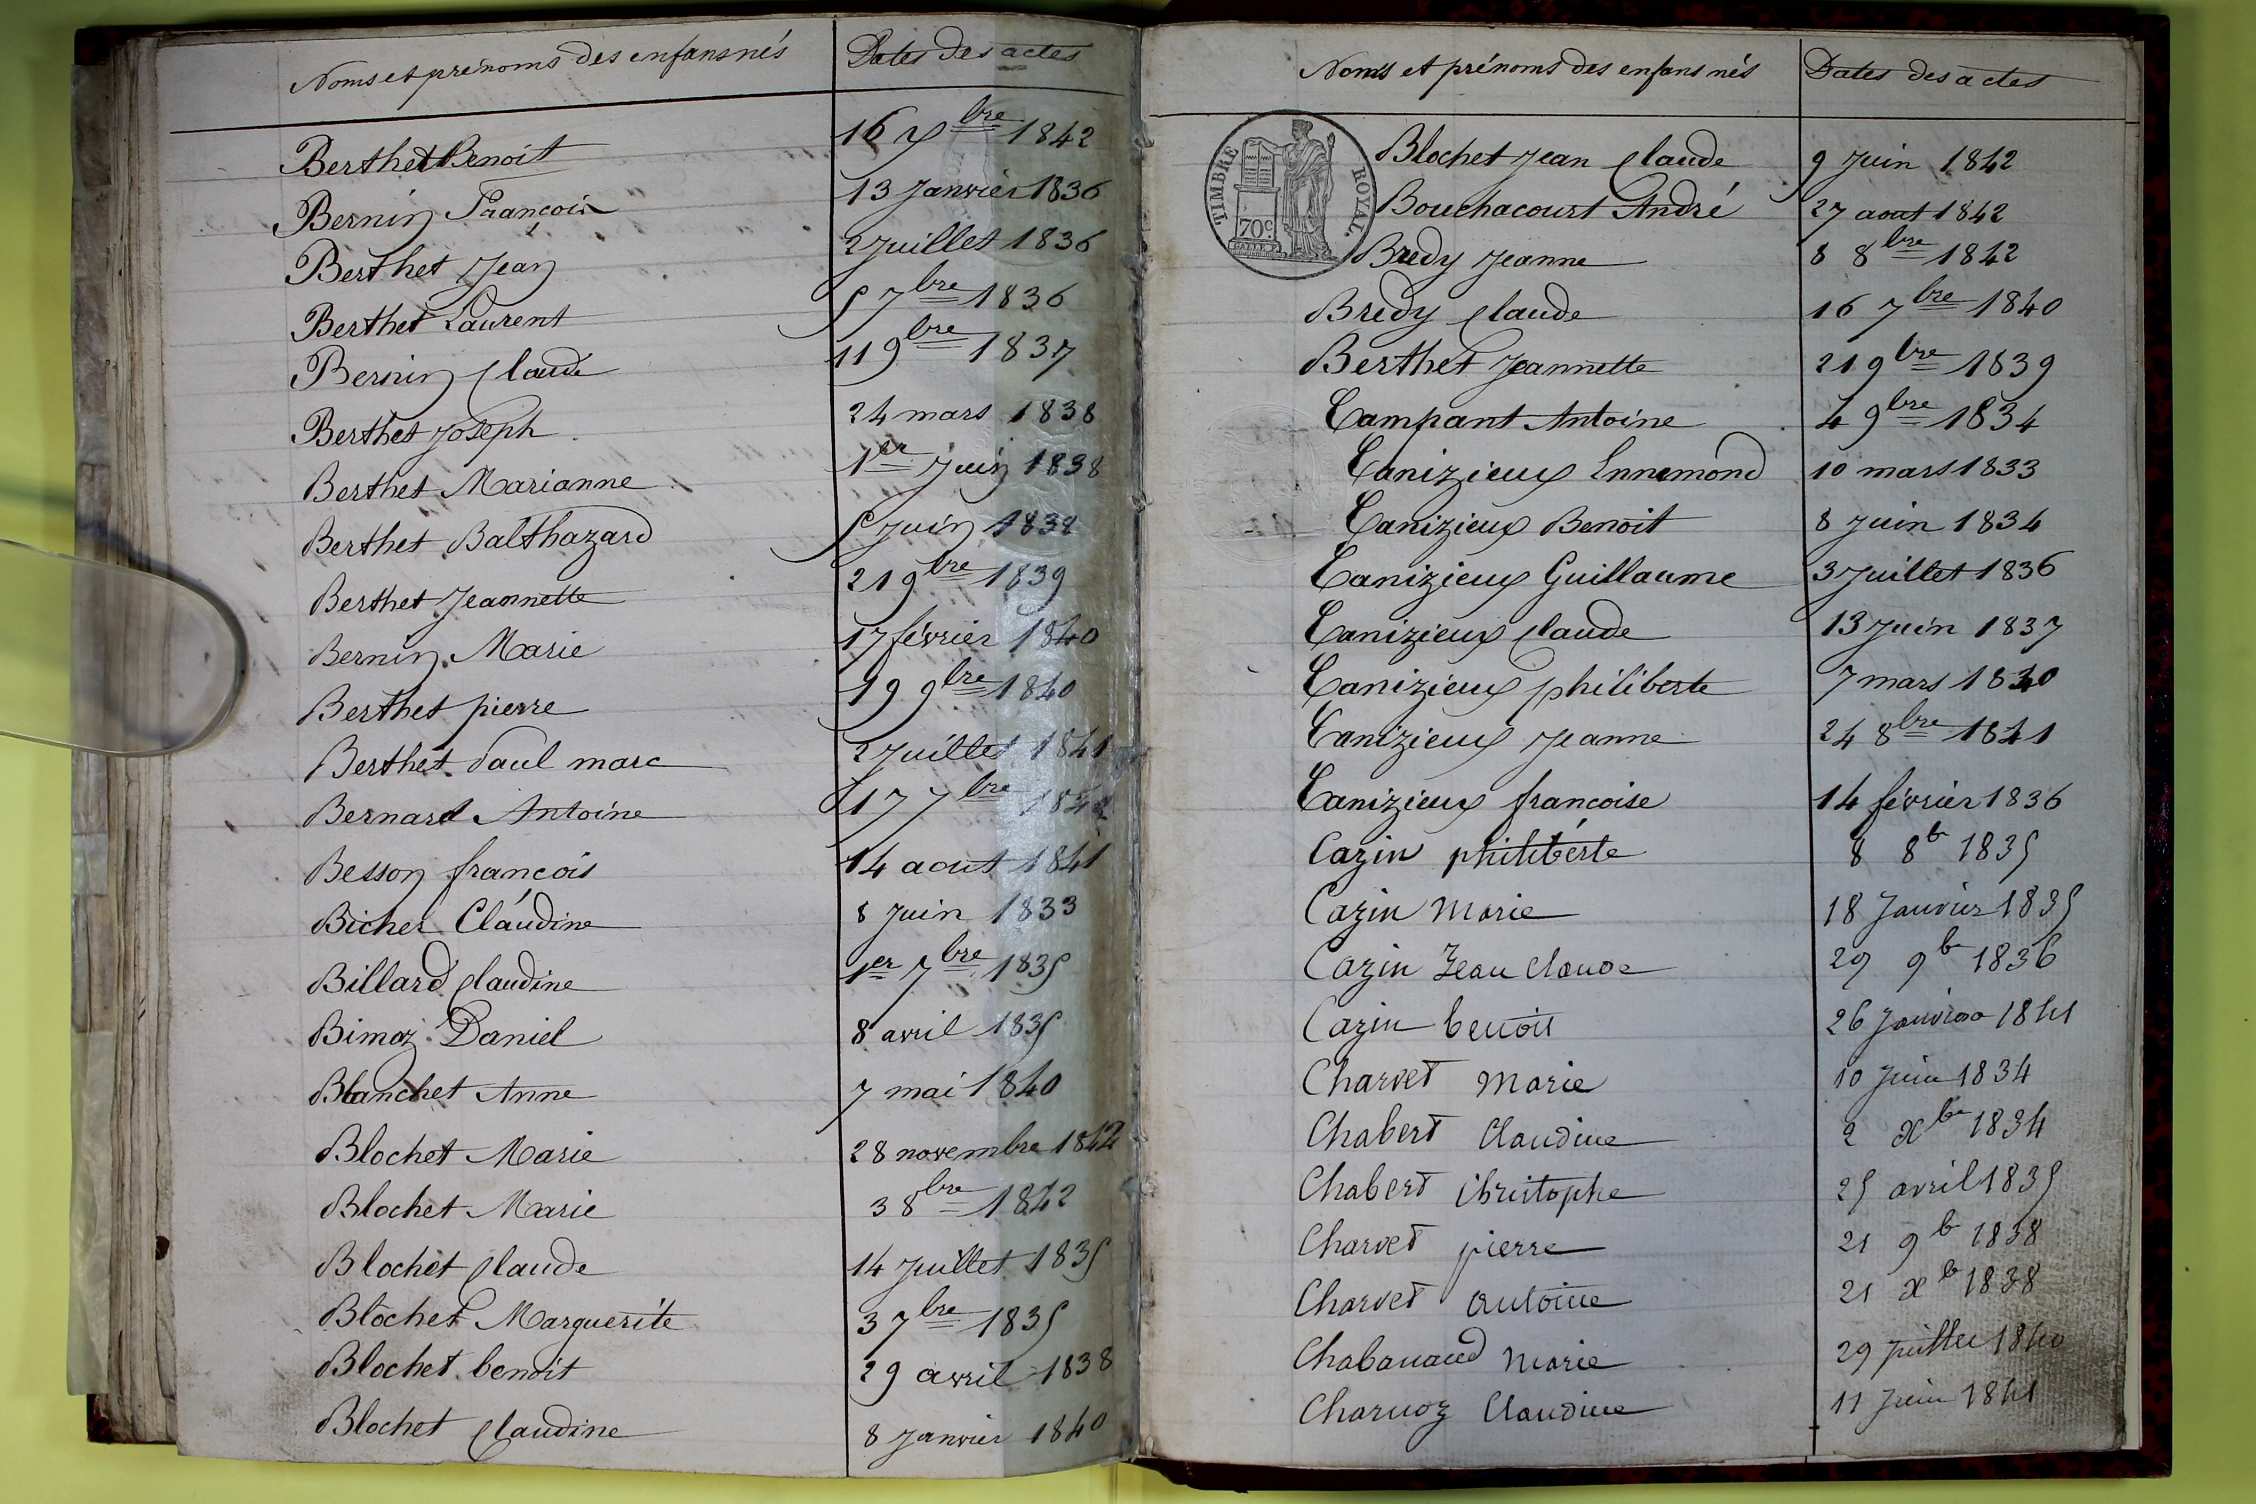 Noms et prénoms des enfans nés Dates des actes
Berthet Benoit 16 7bre 1842
Bernin François 13 Janvier 1836
Berthet Jean 2 Juillet 1836
Berthet Laurent 5 7bre 1836
Bernin Claude 11 9bre 1837
Berthet Joseph 24 mars 1838
Berthet Marianne 1er Juin 1838
Berthet Balthazard 5 Juin 1838
Berthet Jeannette 21 9bre 1839
Bernin Marie 17 février 1840
Berthet pierre 19 9bre 1840
Berthet Paul marc 2 Juillet 1841
Bernard Antoine 17 7bre
Besson francois 14 aout 1841
Bichet Claudine 8 Juin 1833
Billard Claudine 1er 7bre 1835
Bimoz Daniel 8 avril 1835
Blanchet Anne 7 mai 1840
Blochet Marie 28 novembre 1842
Blochet Marie 3 8bre 1842
Blochet Claude 14 Juillet 1835
Blochet Marguerite 3 7bre 1835
Blochet benoit 29 avril 1838
Blochet Claudine 8 Janvier 1840
Noms et prénoms des enfans nés Dates des actes
TIMBRE ROYAL.
70c.
Blochet Jean Claude 9 Juin 1842
Bouchacourt André 27 aout 1842
Bredy Jeanne 8 8bre 1842
Bredy Claude 16 7bre 1840
Berthet Jeannette 21 9bre 1839
Campant Antoine 4 9bre 1834
Canizieux Ennemond 10 mars 1833
Canizieux Benoit 8 Juin 1834
Canizieux Guillaume 3 Juillet 1836
Canizieux Claude 13 Juin 1837
Canizieux philiberte 7 mars
Canizieux Jeanne 24 8bre 1841
Canizieux francoise 14 février 1836
Cazin philiberte 8 8b 1835
Cazin Marie 18 Janvier 1835
Cazin Jean Claude 29 9b 1836
Cazin benoit 26 Janvier 1841
Charvet Marie 10 Juin 1834
Chabert Claudine 2 xbre 1834
Chabert Christophe 25 avril 1835
Charvet pierre 21 9b 1838
Charvet antoine 21 xb 1838
Chabanaud Marie 29 Juillet 1840
Charnoz Claudine 11 Juin 1841